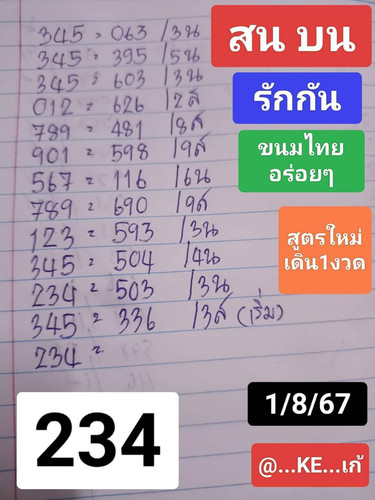 345 = 063 /3น
345 = 395 /5น
345 = 603 /3น
012 = 626 /2ส
789 = 481 /8ส
901 = 598 /9ส
567 = 116 /6น
789 = 690 /9ส
123 = 593 /3น
345 = 504 /4น
234 = 503 /3น
345 = 336 /3ส (เริ่ม)
234 =
สน บน
รักกัน
ขนมไทย
อร่อยๆ
สูตรใหม่
เดิน1งวด
234
1/8/67
@...KE...เก้